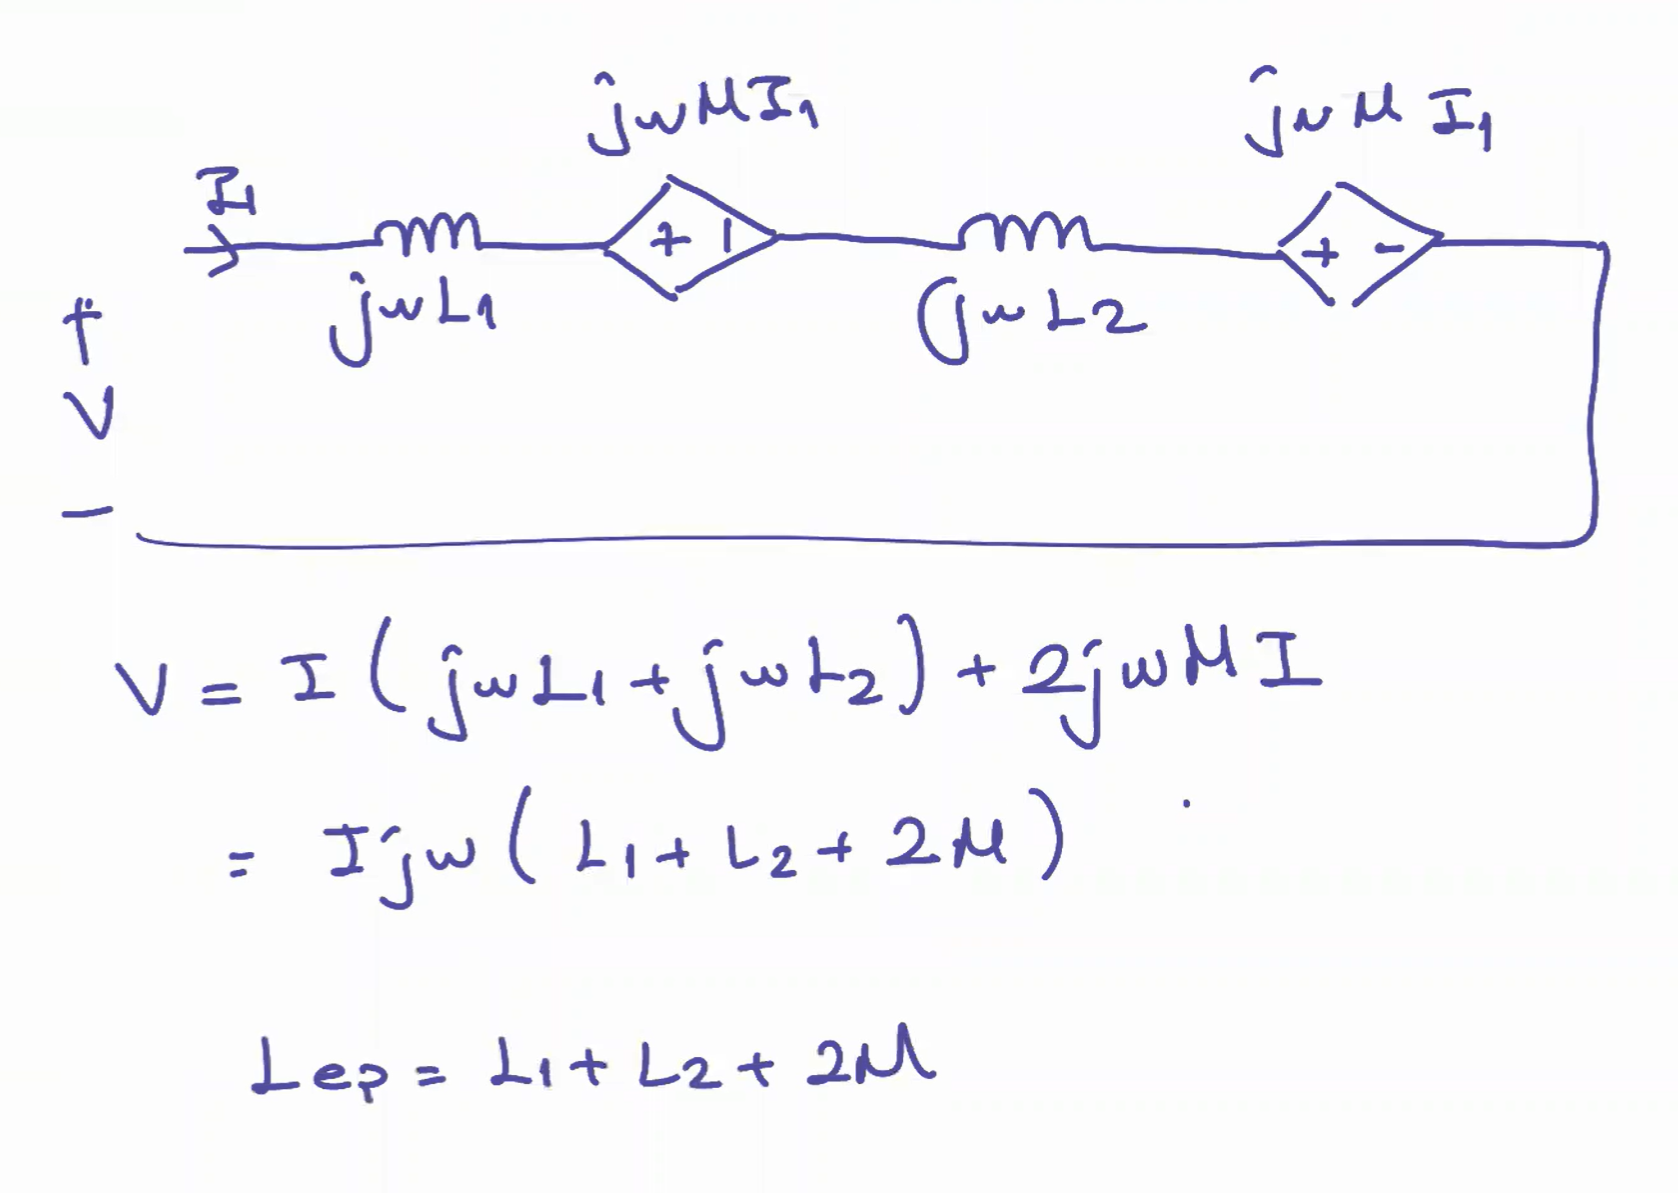 jwMI1
jwMI1
I1
+ -
+ -
jwL1
jwL2
+
V
-
V = I (jwL1 + jwL2) + 2jwMI
= Ijw (L1 + L2 + 2M)
Lep = L1 + L2 + 2M